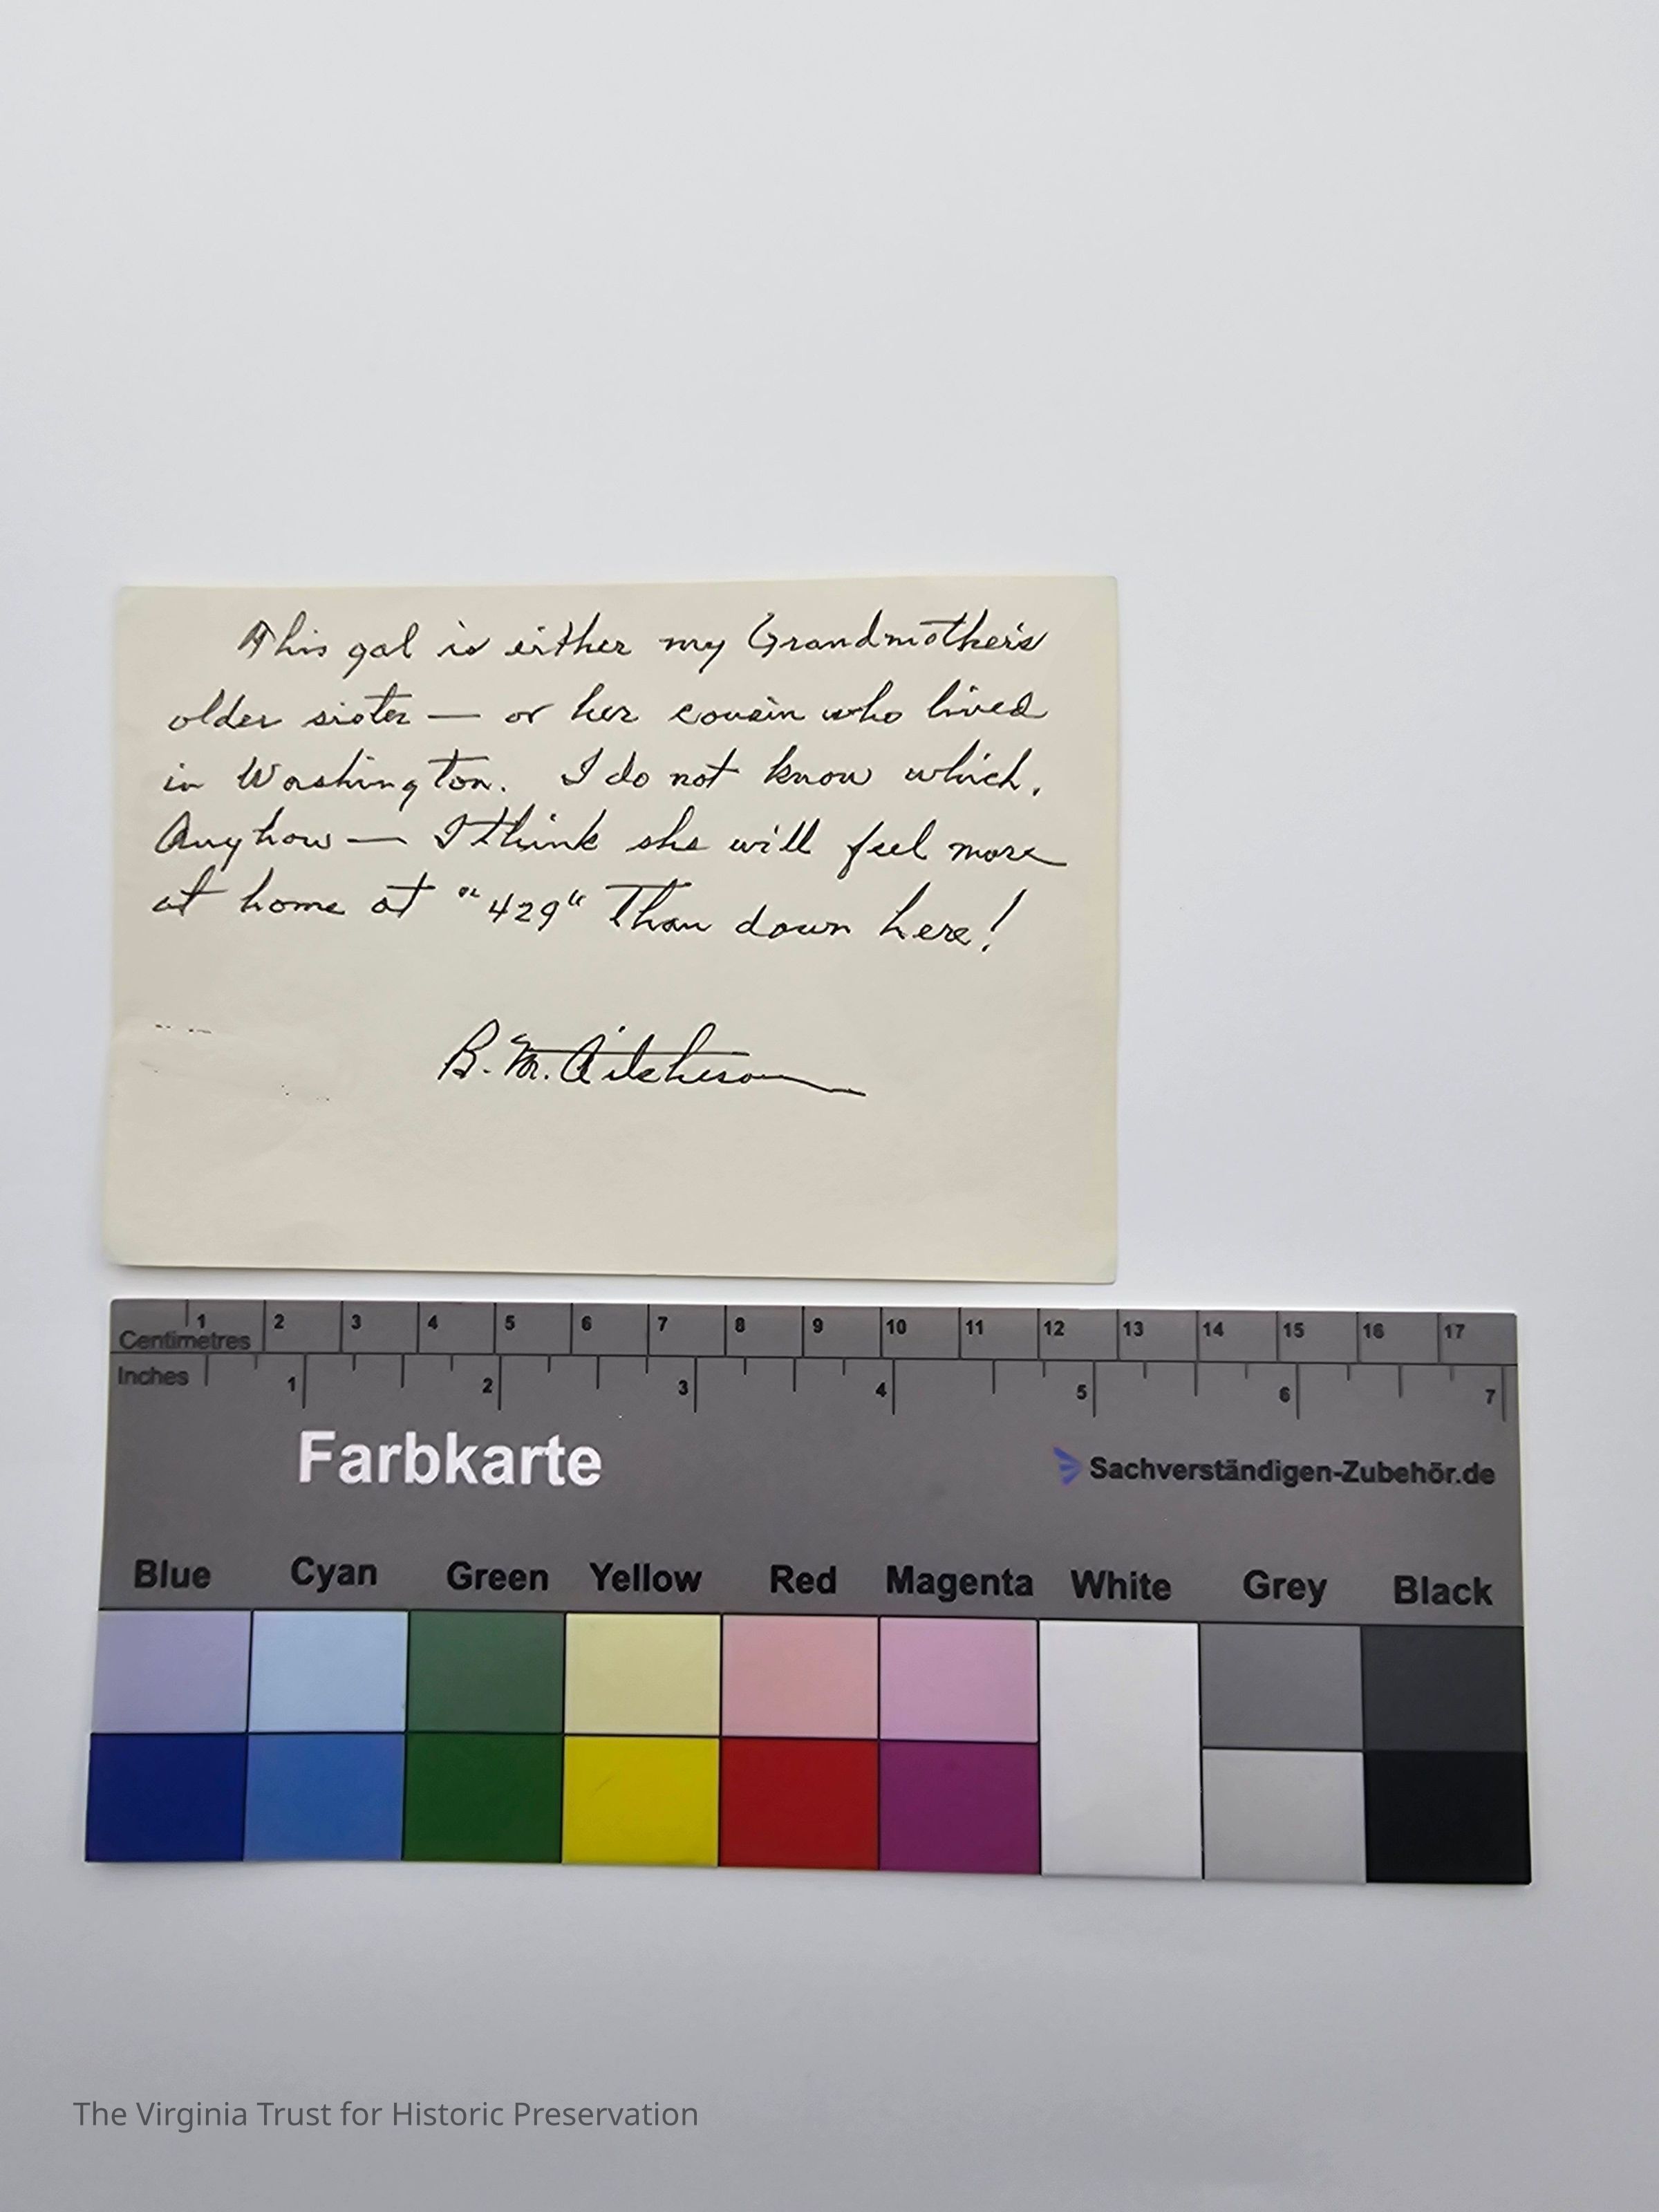 This gal is either my Grandmother's
older sister — or her cousin who lived
in Washington. I do not know which.
Anyhow — I think she will feel more
at home at "429" Than down here!
B. M. Aitcheson
1 2 3 4 5 6 7 8 9 10 11 12 13 14 15 16 17
Centimetres
Inches
1 2 3 4 5 6 7
Farbkarte
Sachverständigen-Zubehör.de
Blue Cyan Green Yellow Red Magenta White Grey Black
The Virginia Trust for Historic Preservation